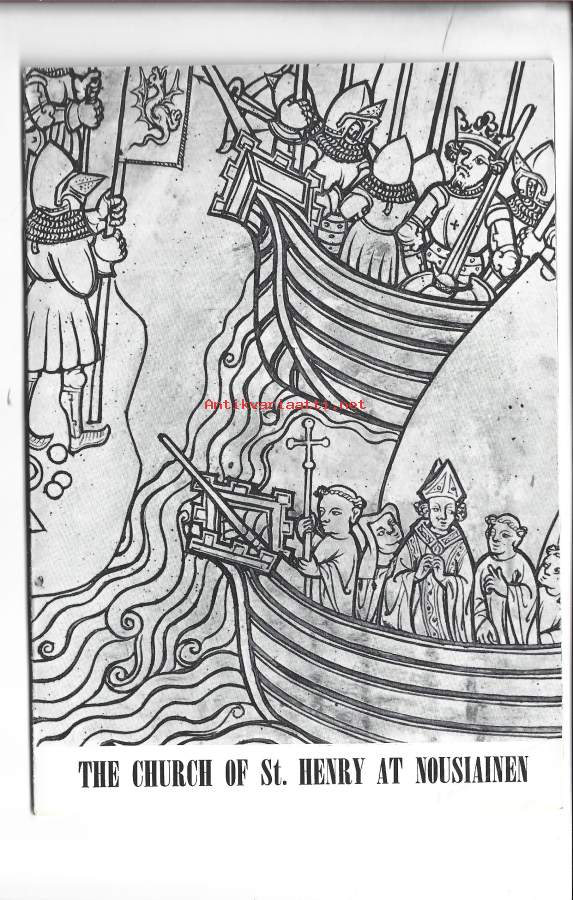 Antikvariaatti.net
THE CHURCH OF St. HENRY AT NOUSIAINEN